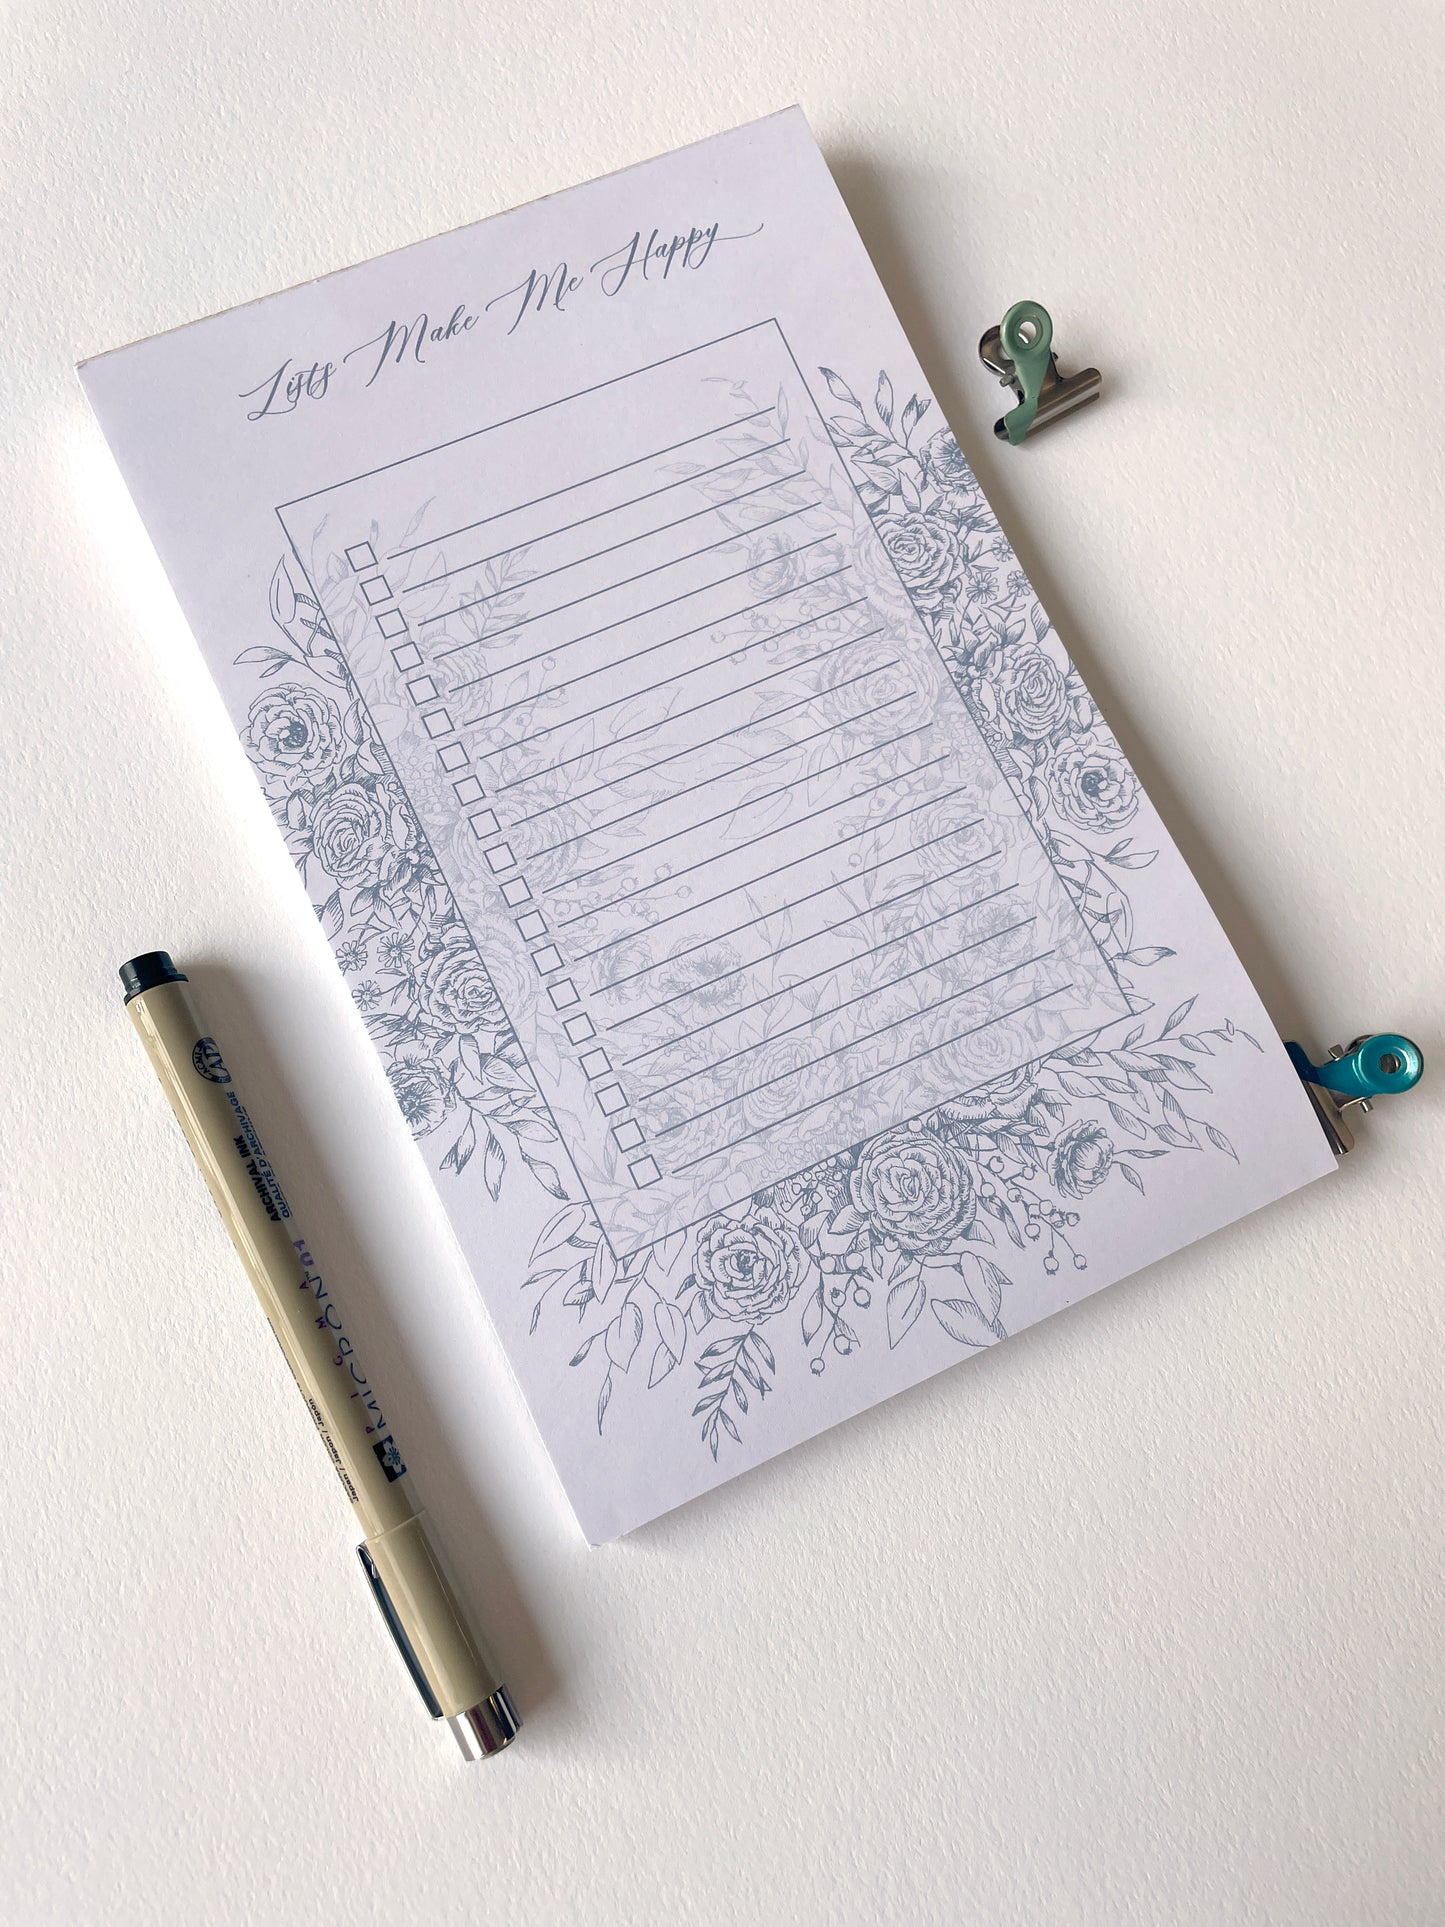 Lists Make Me Happy
AP
ARCHIVAL INK
QUALITÉ D'ARCHIVAGE
PIGMA
MICRON 01
Japan / Japon / Japon